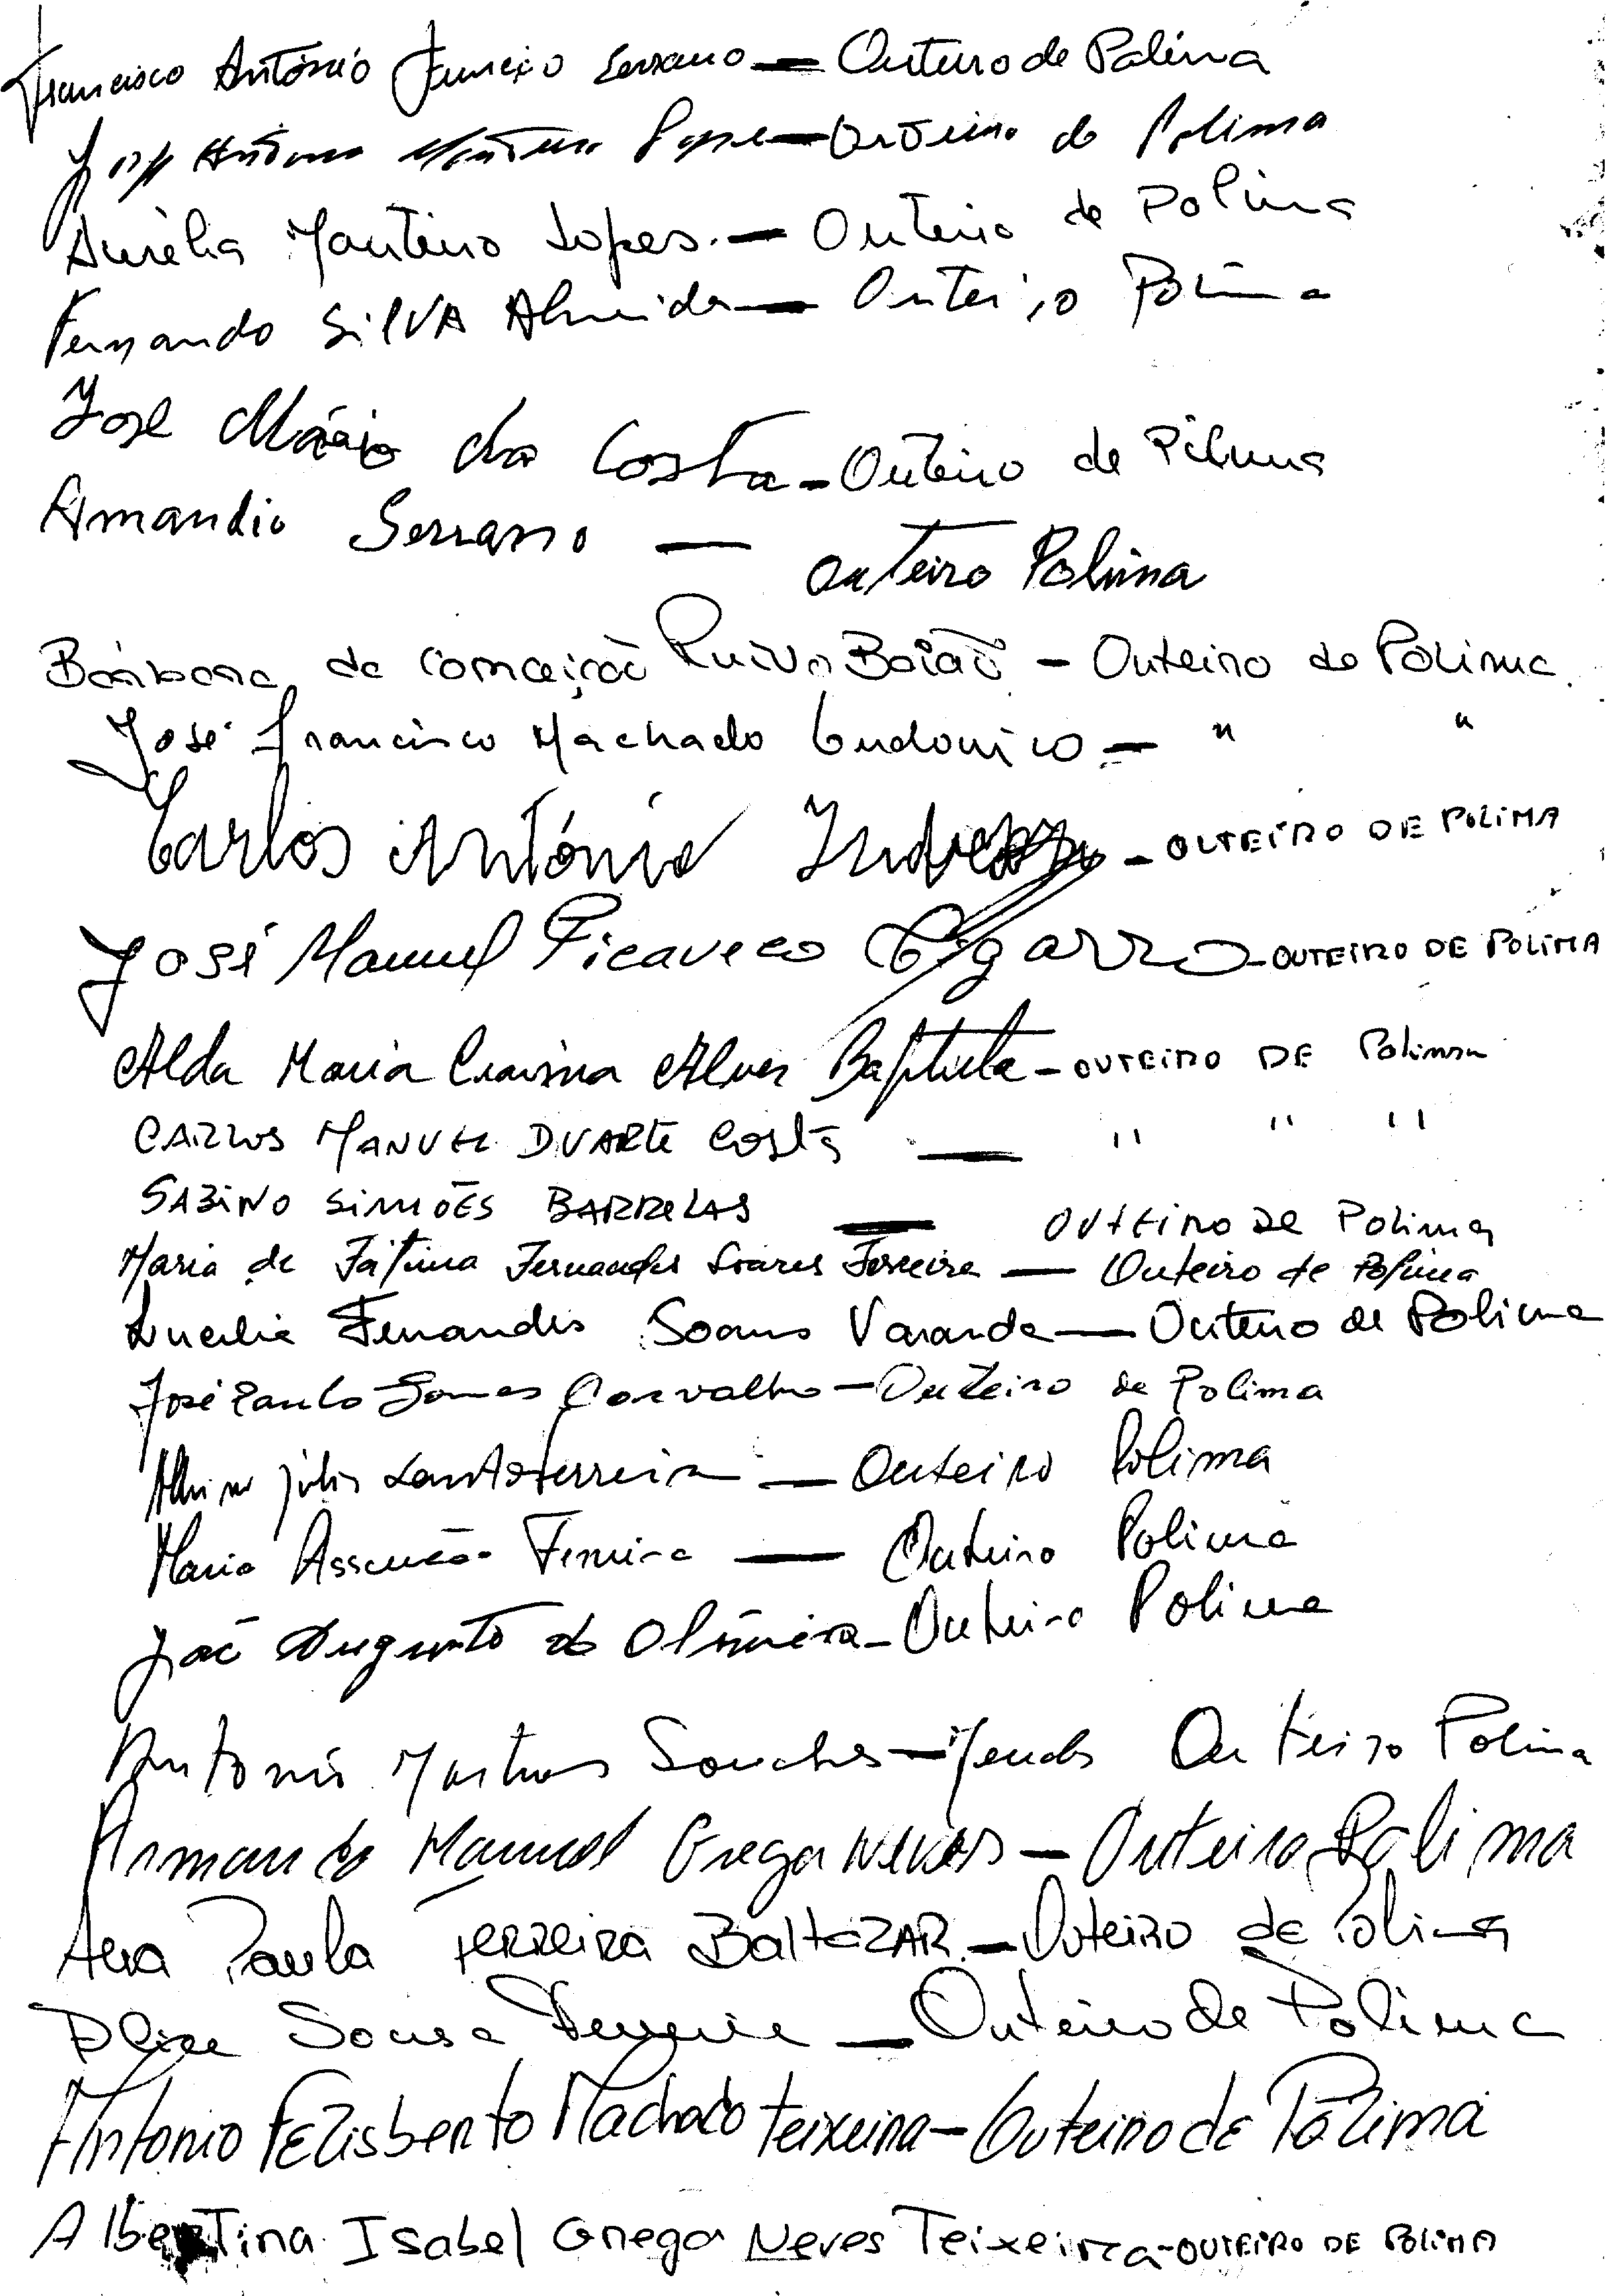 Francisco António Serrano — Outeiro de Polima
José António Monteiro Lopes — Outeiro de Polima
Aurélia Monteiro Lopes. — Outeiro de Polima
Fernando SilVA Almeida — Outeiro Polima
José Mário da Costa — Outeiro de Polima
Amandio Serrano — Outeiro Polima
Bárbara da Conceição Ruivo Baião — Outeiro de Polima.
José Francisco Machado Ludovico — " "
Carlos António — OUTEIRO DE POLIMA
José Manuel Picaveco Cigarro — OUTEIRO DE POLIMA
Alda Maria Alves Baptista — OUTEIRO DE Polima
CARLOS MANUEL DUARTE Costa — " " "
SABINO SIMÕES BARRELAS — OUTEIRO DE Polima
Maria de Fátima Fernandes Soares Ferreira — Outeiro de Polima
Lucilia Fernandes Soares Varanda — Outeiro de Polima
José Paulo Gomes Carvalho — Outeiro de Polima
Albino Júlio Ferreira — Outeiro Polima
Maria Assunção Ferreira — Outeiro Polima
Augusto de Oliveira — Outeiro Polima
Antonio Martins Mendes Outeiro Polima
Armando Manuel Grega Neves — Outeiro Polima
Ana Paula Ferreira BaltazAR. — Outeiro de Polima
Sousa Ferreira — Outeiro de Polima
Antonio FElisberto Machado Teixeira — Outeiro de Polima
Albertina Isabel Grega Neves Teixeira — OUTEIRO DE POLIMA